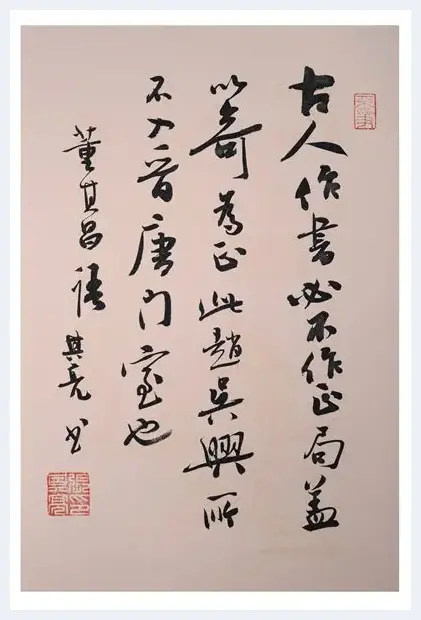 古人作書必不作正局蓋
以奇為正此趙吳興所
不入晉唐門室也
董其昌語 其亮书